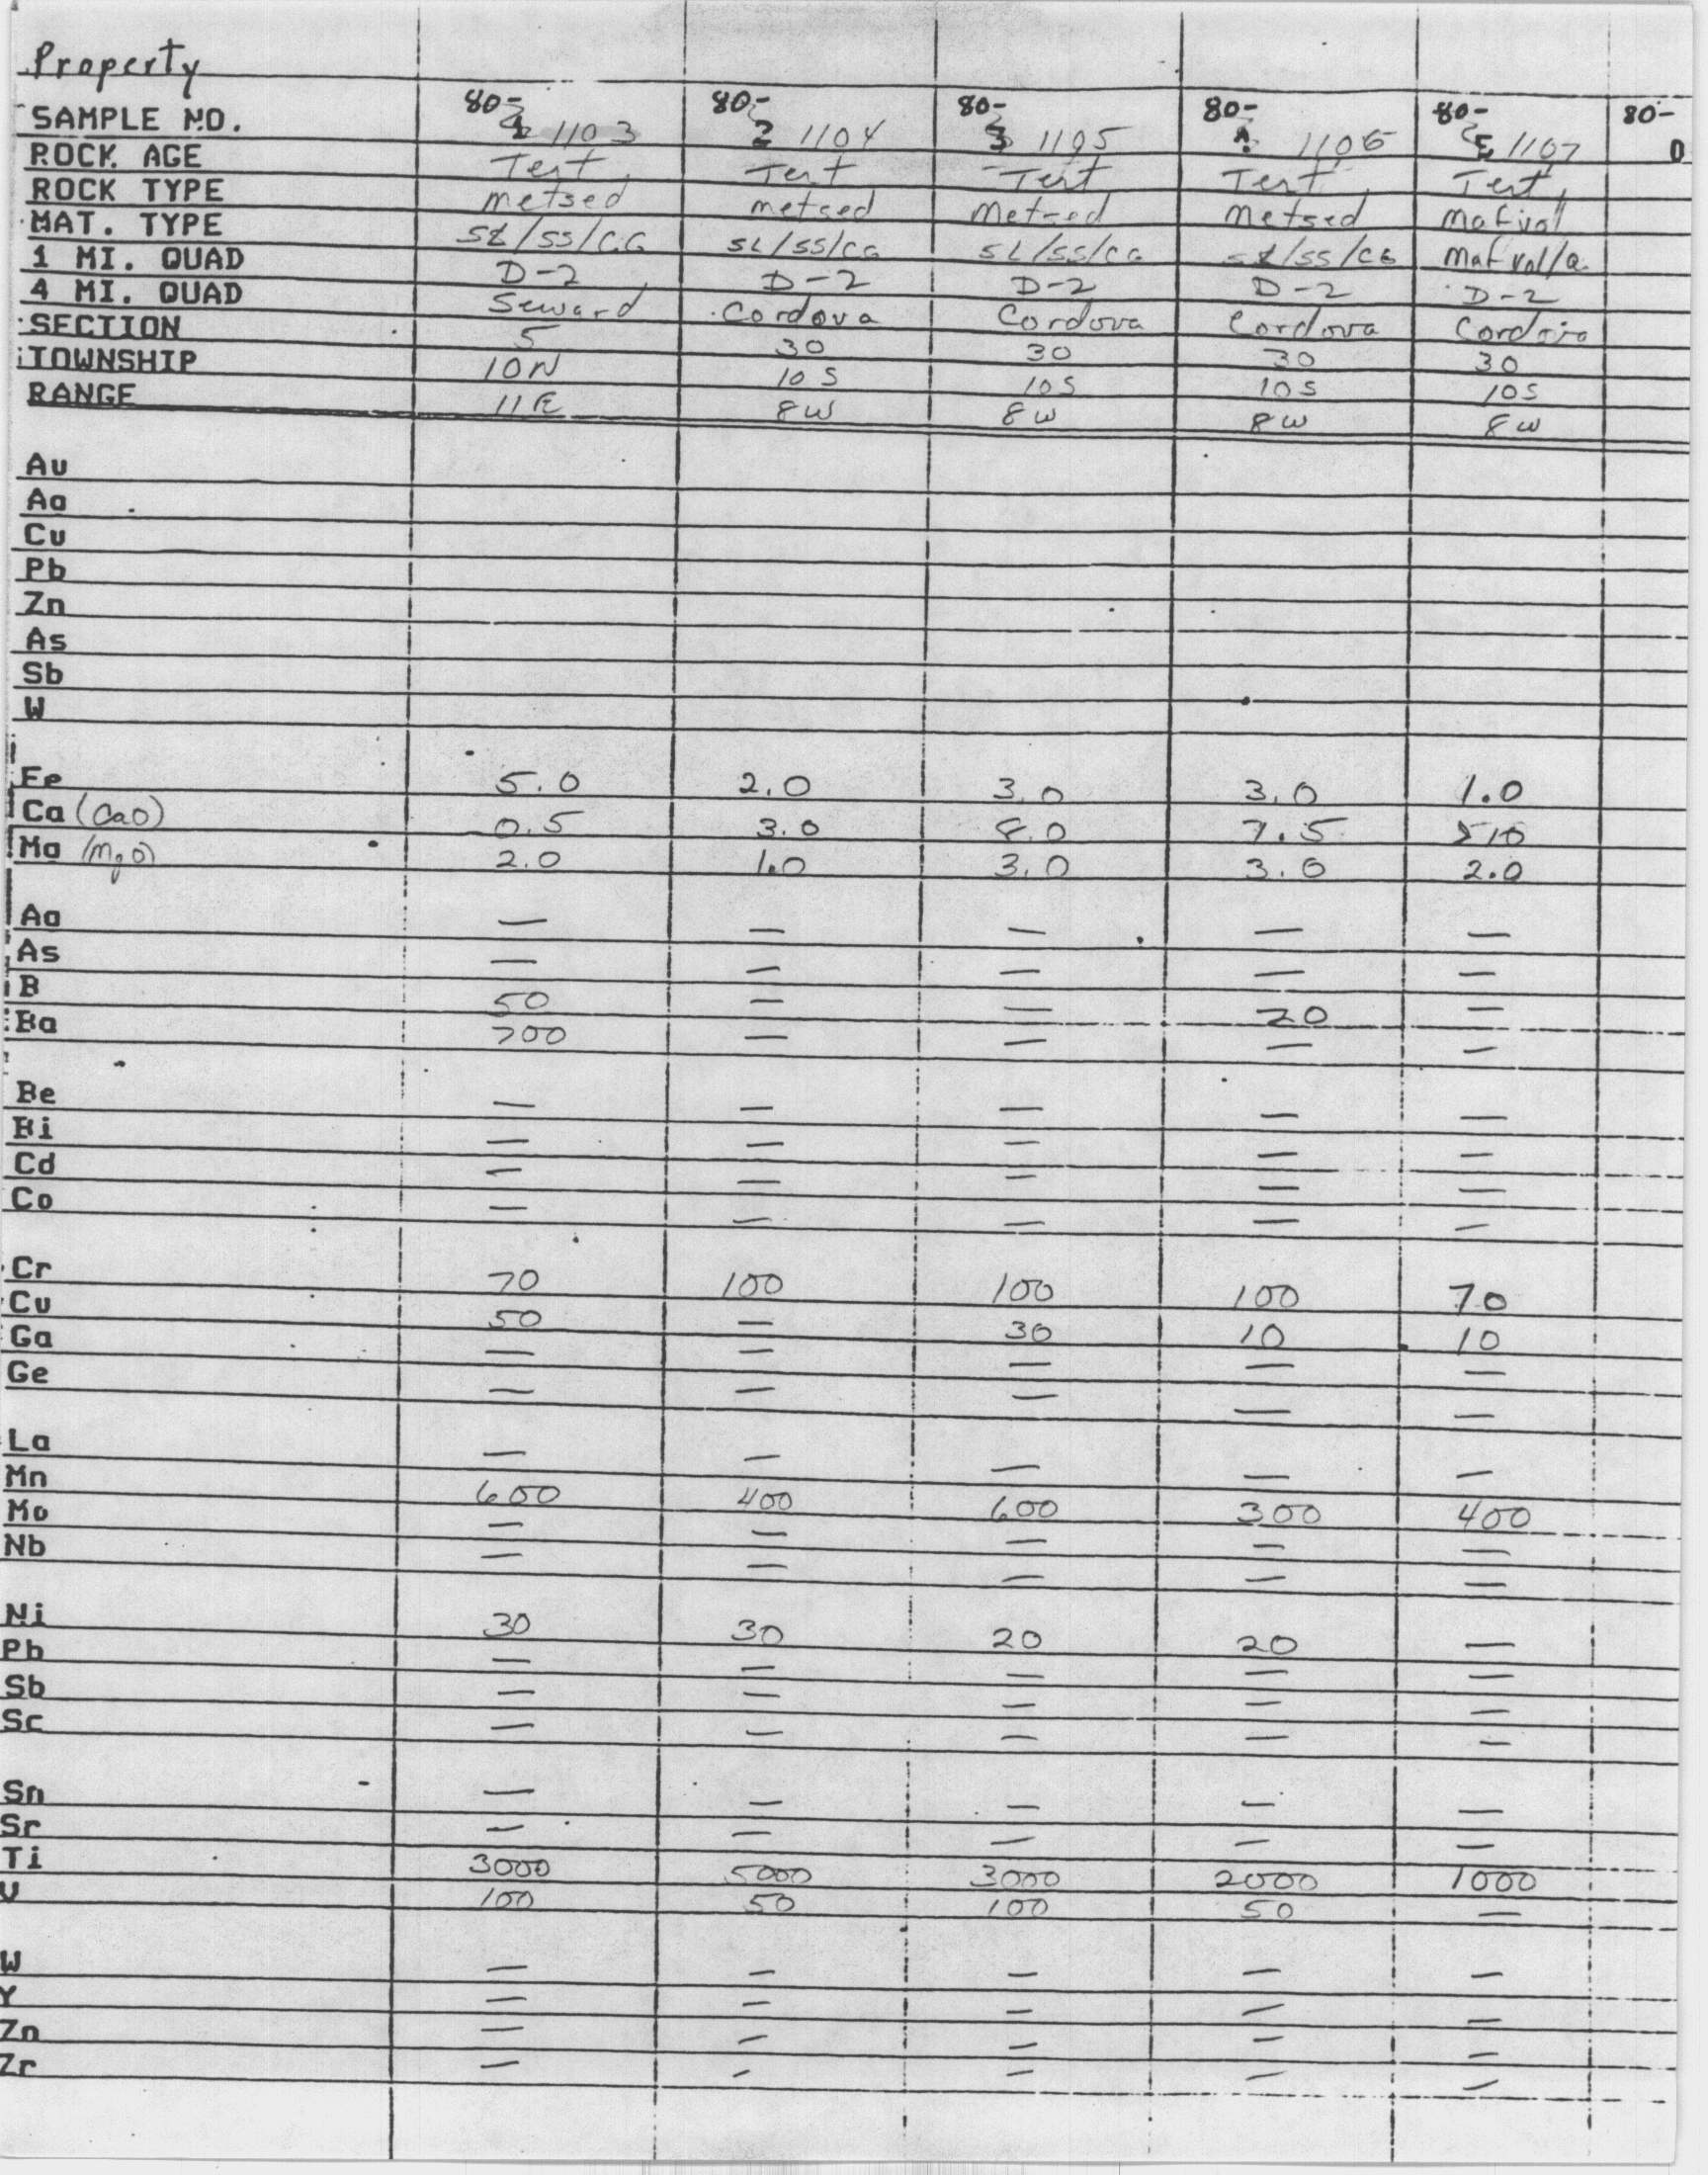 Property
SAMPLE NO. 80- 1 1103 80- 2 1104 80- 3 1105 80- 1106 80- 1107 80-
ROCK AGE Tert Tert Tert Tert Tert
ROCK TYPE metsed metsed Metsed Metsed Mafvol
MAT. TYPE SL/SS/CG SL/SS/CG SL/SS/CG SL/SS/CG Mafvol/a
1 MI. QUAD D-2 D-2 D-2 D-2 D-2
4 MI. QUAD Seward Cordova Cordova Cordova Cordova
SECTION 5 30 30 30 30
TOWNSHIP 10N 10S 10S 10S 10S
RANGE 11E 8W 8W 8W 8W
Au
Ag
Cu
Pb
Zn
As
Sb
W
Fe 5.0 2.0 3.0 3.0 1.0
Ca (CaO) 0.5 3.0 8.0 7.5 >10
Mg (MgO) 2.0 1.0 3.0 3.0 2.0
Ag — — — — —
As — — — — —
B 50 — — 20 —
Ba 700 — — — —
Be — — — — —
Bi — — — — —
Cd — — — — —
Co — — — — —
Cr 70 100 100 100 70
Cu 50 — 30 10 10
Ga — — — — —
Ge — — — — —
La — — — — —
Mn 600 400 600 300 400
Mo — — — — —
Nb — — — — —
Ni 30 30 20 20 —
Pb — — — — —
Sb — — — — —
Sc — — — — —
Sn — — — — —
Sr — — — — —
Ti 3000 5000 3000 2000 1000
V 100 50 100 50 —
W — — — — —
Y — — — — —
Zn — — — — —
Zr — — — — —